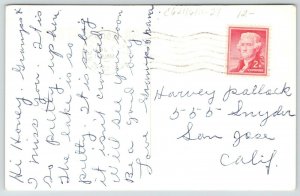 Hi Honey. Gramps &
I miss you. It is
so pretty up here.
The lake is so
pretty. It is so big
it isn't crowded.
We'll see you soon
Be a good boy
Love Gramps & Nana
12-
2¢
Harvey Pollock
555 Snyder
San Jose
Calif